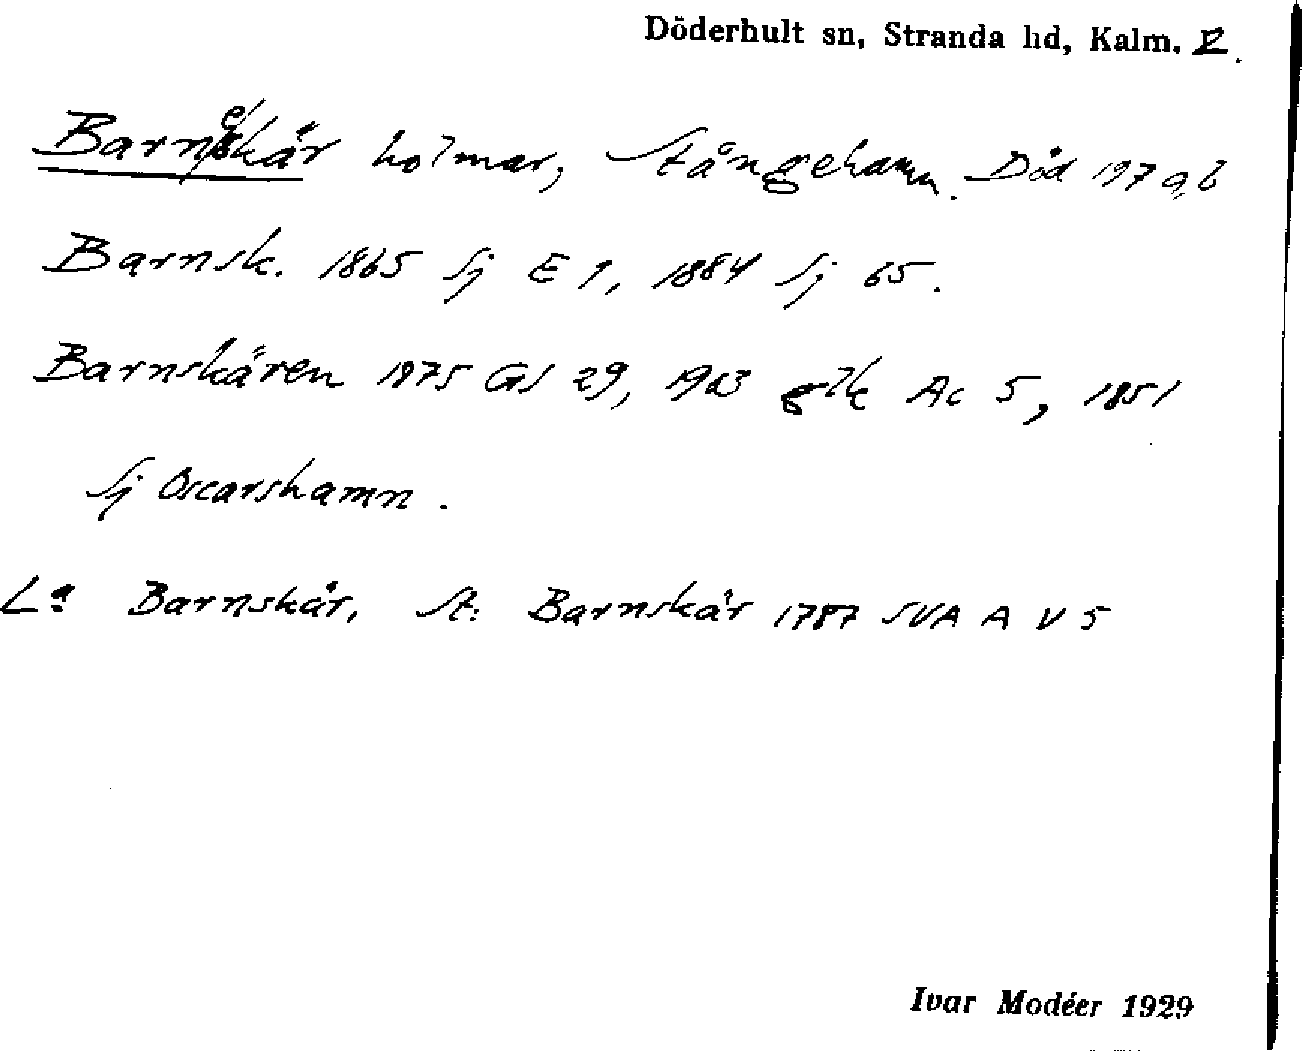 Döderhult sn, Stranda hd, Kalm.
Barneskär holmar, Stångehamn. Död 197 a,b
Barnsk. 1865 Sj E 1, 1884 Sj 65.
Barnskären 1875 GS 29, 1903 glk Ac 5, 1851
Sj Oscarshamn.
La Barnskär, St: Barnskär 1787 SVA A V 5
Ivar Modéer 1929